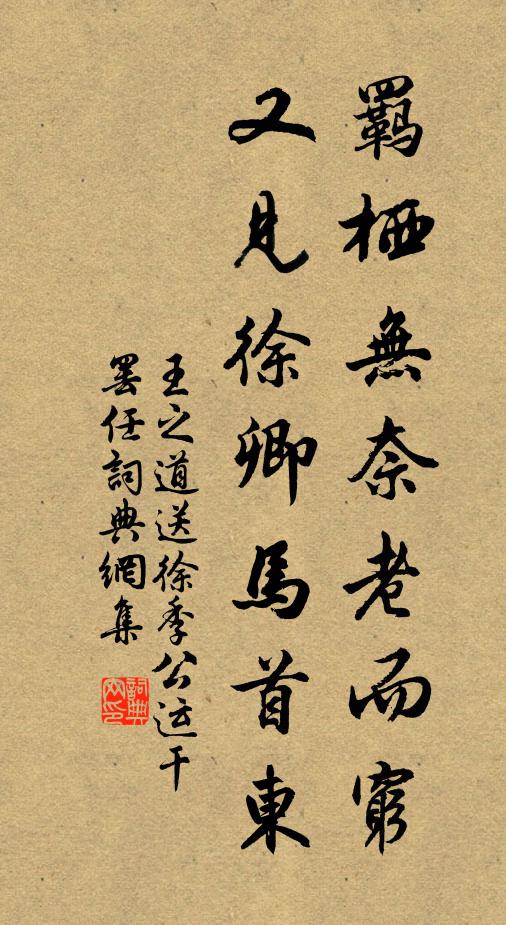 羈栖無奈老而窮
又見徐卿馬首東
王之道送徐季公运干
罢任詞典網集
詞典网印